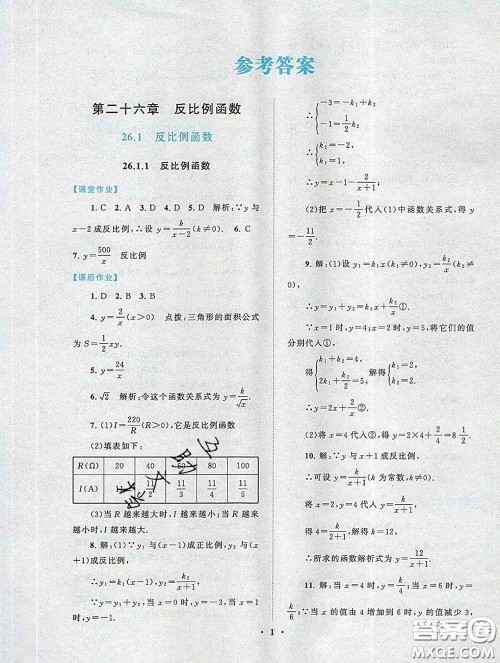 参考答案
第二十六章 反比例函数
26.1 反比例函数
26.1.1 反比例函数
【课堂作业】
1. C 2. A 3. D 4. D 5. D 解析:∵y与
x-2成反比例,∴设 y=k/(x-2)(k≠0). 6. C
7. y=500/x 反比例
【课后作业】
1. D 2. B 3. B
4. y=2/x(x>0) 点拨:三角形的面积公式
为 S=1/2xy.
5. y=24/x
6. √2 解析:令这个函数关系式为 y=k/√x.
7. (1)I=220/R(R>0),它是反比例函数
(2)填表如下:
R(Ω) 20 40 60 80 100
I(A) 11/2 11/3 11/4 11/5
(3)当 R 越来越大时,I 越来越小;当 R 越来
越小时,I 越来越大.
8. 解:(1)∵y₁与(x-1)成正比例,y₂与
(x+1)成反比例,
∴y₁=k₁(x-1),y₂=k₂/(x+1).
∵y=y₁+y₂,当 x=0 时,y=-3,当 x=1
时,y=-1.
∴{-3=-k₁+k₂,
-1=1/2k₂.
∴{k₂=-2,
k₁=1.
∴y=x-1-2/(x+1);
(2)把 x=-1/2代入(1)中函数关系式,得 y
=-11/2.
9. 解:(1)设 y₁=k₁x(k₁≠0),y₂=k₂/x(k₂
≠0),
∴y=y₁+y₂=k₁x+k₂/x①.
∵x=1 时,y=4;x=2 时,y=5,将它们的值
分别代入①,
得{k₁+k₂=4,
2k₁+k₂/2=5. 解得{k₁=2,
k₂=2.
∴y=2x+2/x②.
(2)将 x=4 代入②,得 y=2×4+2/4=8 1/2.
10. 解:∵y 与 x+1 成反比例,
∴可设 y=k/(x+1)(k 为常数,k≠0).
将 x=2,y=4 代入 y=k/(x+1),
得 4=k/(2+1),解得 k=12.
∴所求的函数解析式为 y=12/(x+1).
11. 解:当 x=4 时,y=k/4;当 x=6 时,y=
k/6;∵当 x 的值由 4 增加到 6 时,y 值减少 3,
· 1 ·
答案圈
MXQE.COM